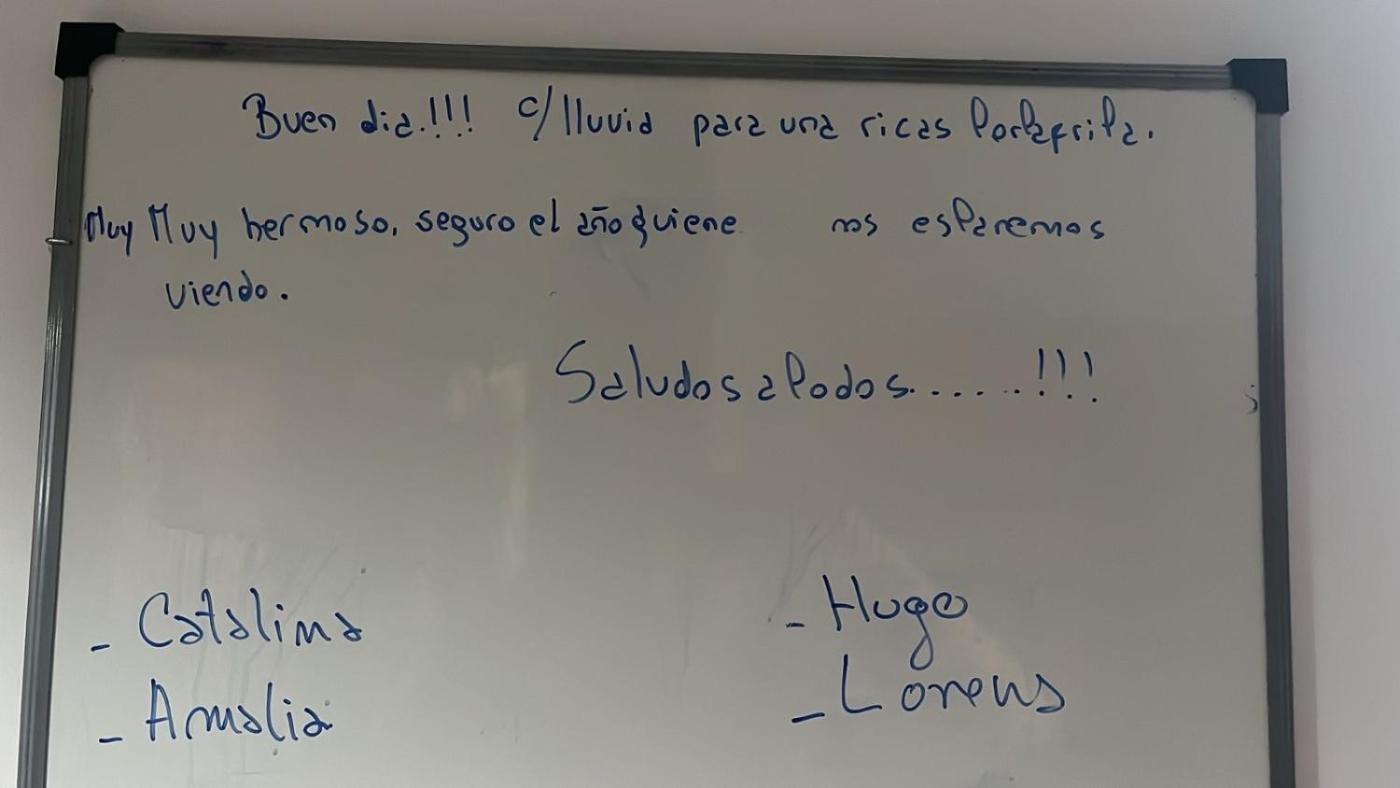 Buen dia.!!! c/lluvia para una ricas tortafrita.
Muy Muy hermoso, seguro el año quiene nos estaremos
viendo.
Saludos a todos......!!!
- Catalina
- Amalia
- Hugo
- Lorens